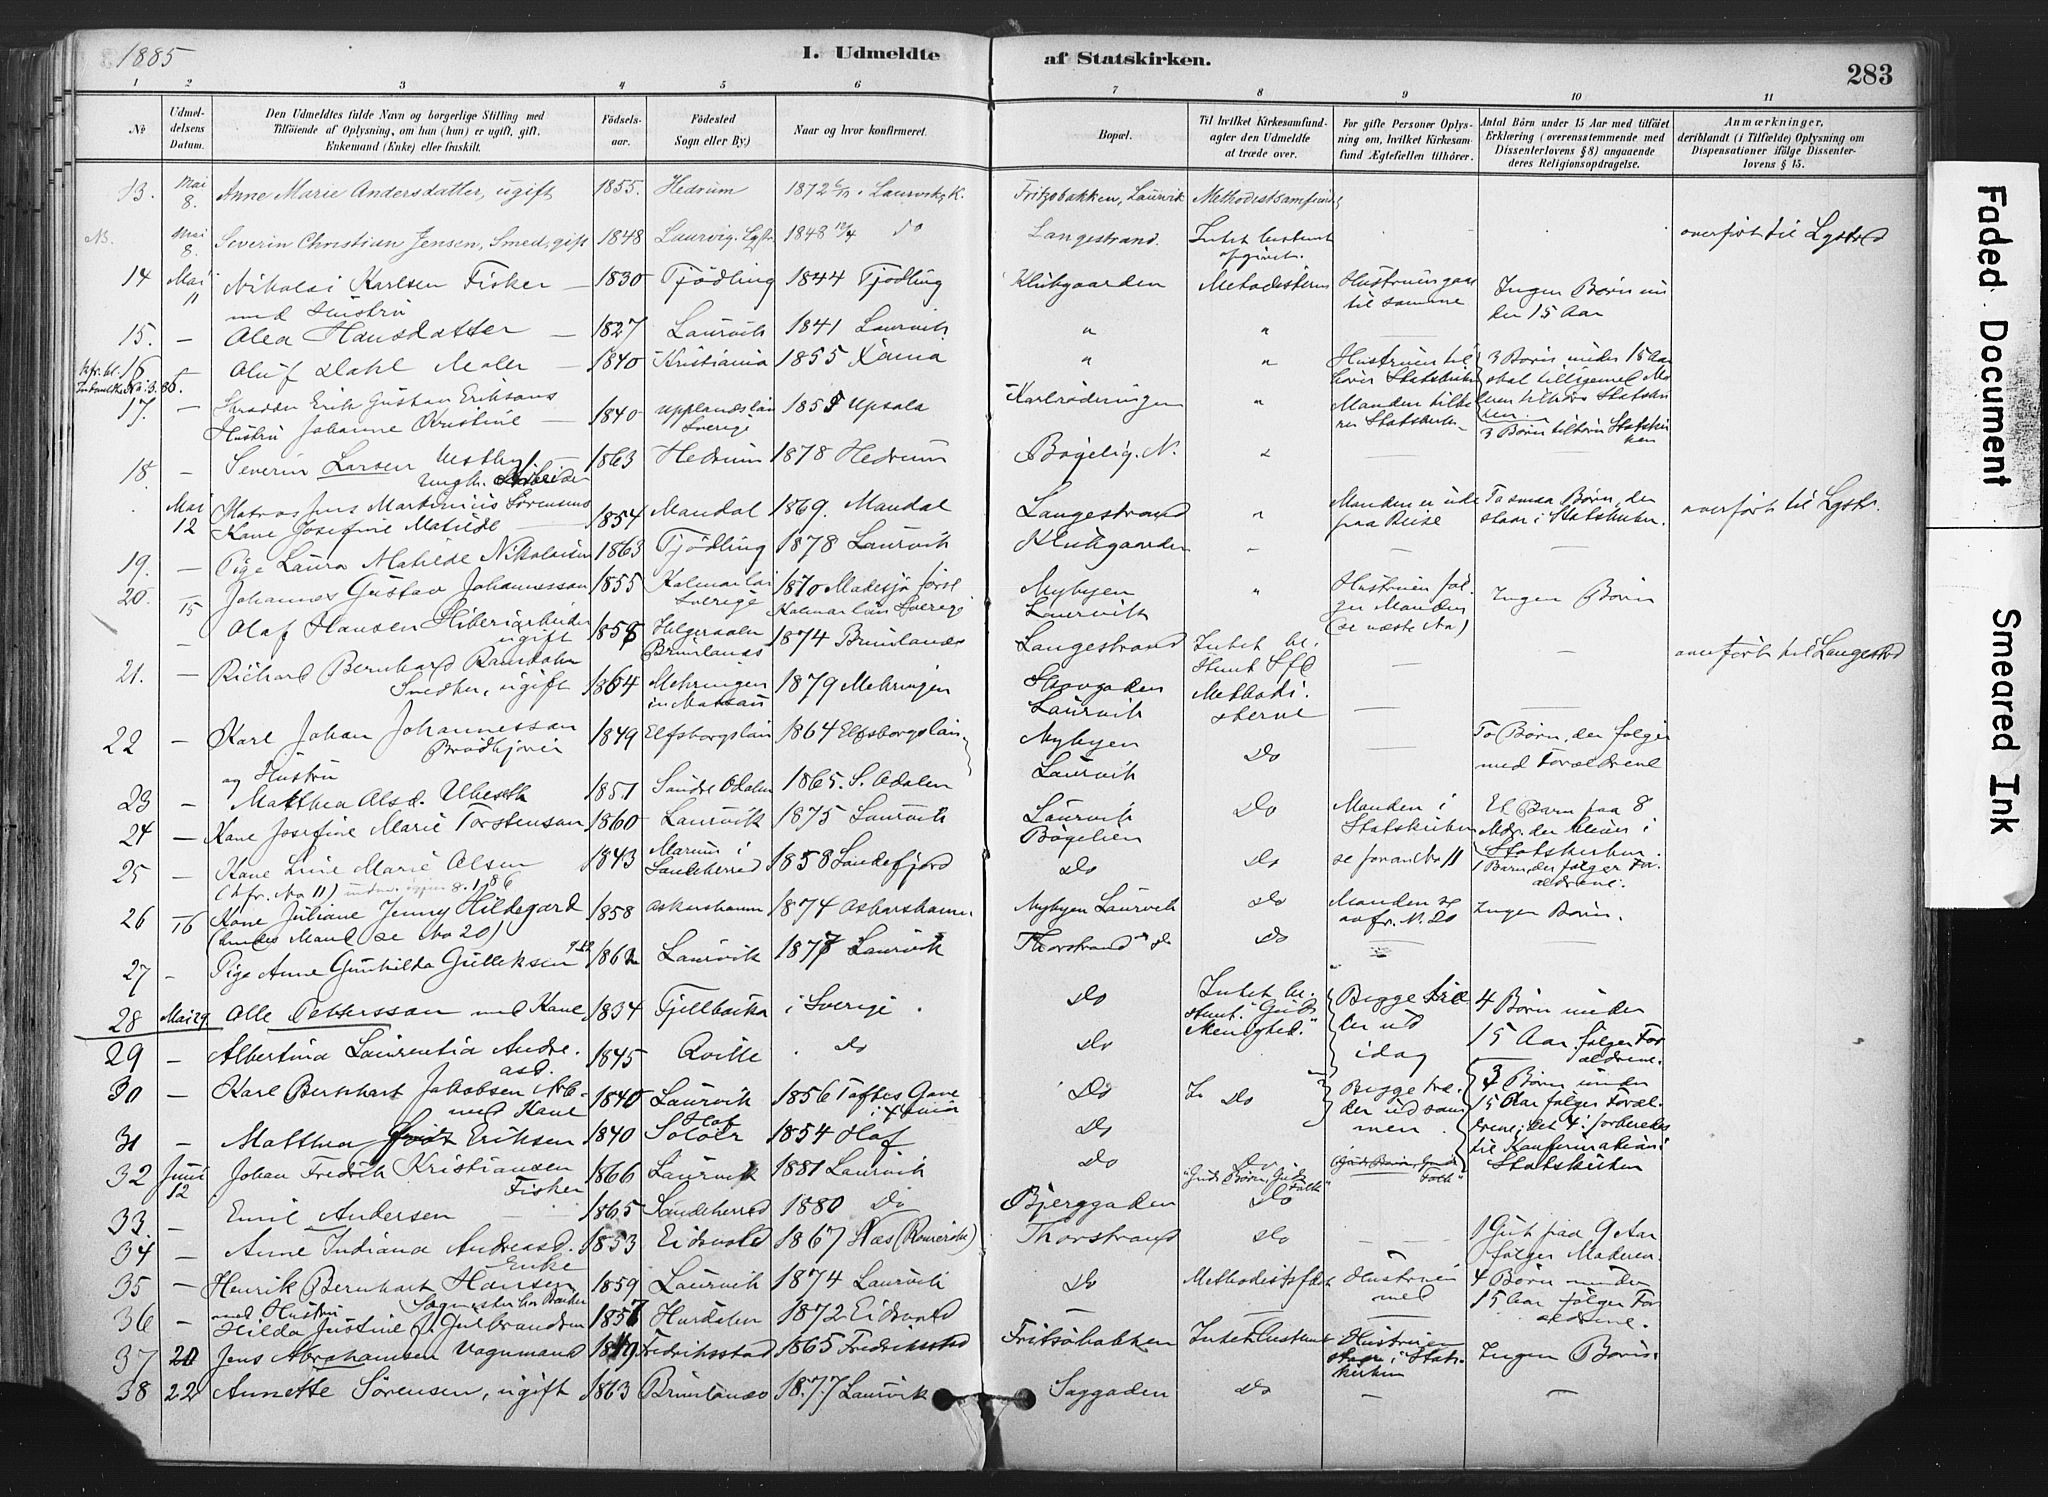 1885
I. Udmeldte af Statskirken.
283
1 2 3 4 5 6 7 8 9 10 11
No
Udmeldelsens Datum.
Den Udmeldtes fulde Navn og borgerlige Stilling med Tilföiende af Oplysning, om han (hun) er ugift, gift, Enkemand (Enke) eller fraskilt.
Födselsaar.
Födested Sogn eller By.)
Naar og hvor konfirmeret.
Bopæl.
Til hvilket Kirkesamfund agter den Udmeldte at træde over.
For gifte Personer Oplysning om, hvilket Kirkesamfund Ægtefællen tilhörer.
Antal Börn under 15 Aar med tilföiet Erklæring (overensstemmende med Dissenterlovens § 8) angaaende deres Religionsopdragelse.
Anmærkninger, deriblandt (i Tilfælde) Oplysning om Dispensationer ifölge Dissenterlovens § 15.
13. Mai 8. Anne Marie Andersdatter, ugift 1855. Hedrum 1872 i Laurviks K. Fritzøbakken, Laurvik Methodistsamfund
Mai 8. Severin Christian Jensen, Smed, gift 1848 Laurvig. 1848 do Langestrand. Intet bestemt opgivet. overført til Lgstrd
14 Mai 11 Nikolai Karlsen Fisker — 1830 Tjödling 1844 Tjödling Klubgaarden Metodisterne Hustruen gaar til samme Ingen Börn under 15 Aar
med Hustru
15. — Alea Hansdatter — 1827 Laurvik 1841 Laurvik " "
16 — Oluf Dahl Maler — 1840 Kristiania 1855 Xania " " Hustruen tilhörer Statskirken 3 Börn under 15 Aar
17. — Skrædder Erik Gustav Eriksens Hustru Johanne Kristine — 1840 Upplandslän Sverige 1855 Upsala Karlröderingen " Manden tilhörer Statskirken 3 Börn tilhörer Statskirken
18. — Severin Larsen Vestby Ungk. Arbeider 1863 Hedrum 1878 Hedrum Bögelig. N. " — —
Mai 12 Matros Jens Martinius Sörensens Kone Josefine Matilde — 1854 Mandal 1869. Mandal Langestrand " Manden er ude paa Reise To smaa Börn, der staar i Statskirken. overført til Lgstr.
19. — Pige Laura Matilde Nikolaisen 1863 Tjödling 1878 Laurvik Klubgaarden " — —
20. 15 Johannes Gustav Johannessen 1855 Kalmar län Sverige 1870 Madesjö Kalmar län Sverige Nybyen Laurvik " Hustruen følger Manden (se næste No) Ingen Börn
— Olaf Hansen Hiberiarbeider ugift 1858 Helgeroaen Brunlanæs 1874 Brunlanæs Langestrand Intet bestemt — — overført til Langestrd
21. — Richard Bernhard Ramdohr Snedker, ugift 1864 Mehringen in Nassau 1879 Mehringen Skovgaden Laurvik Methodisterne — —
22 — Karl Johan Johannessen Brödkjörer 1849 Elfsborgslän 1864 Elfsborgslän Nybyen Laurvik Do — To Börn, der følger med Forældrene
og Hustru
23 — Matthea Olsd. Ulseth 1851 Söndre Odalen 1865. S. Odalen
24 — Kone Josefine Marie Torstensen 1860 Laurvik 1875 Laurvik Laurvik Bögelien Do Manden i Statskirken Et Barn paa 8 Mdr. der bliver i Statskirken.
25 — Kone Line Marie Olsen 1843 Marum i Sandeherred 1858 Sandefjord Do Do se foran No 11 1 Barn, der følger Forældrene.
(kfr. No 11) indm. igjen 8.1.86
26 16 Kone Juliane Jenny Hildegard 1858 Oskarshamn 1874 Oskarshamn Nybyen Laurvik Do Manden se ovfr. N. 20 Ingen Börn.
(hendes Mand se No 20)
27 — Pige Anne Gunhilda Gulleksen 1862 Laurvik 1877 Laurvik Thorstrand Do Do — —
28 Mai 29 Olle Pettersson med Kone 1834 Fjellbacka i Sverige. Do Intet bestemt. "Guds Menighed." Begge træder ud idag 4 Börn under 15 Aar følger Forældrene.
29 — Albertina Laurentia Andreasd. 1845 Qville Do Do
30 — Karl Bernhart Jakobsen Arb. med Kone 1840 Laurvik 1856 Toftes Gave i Xania Do Do Begge træder ud sammen. 3 Börn under 15 Aar følger Forældrene; det 4. forberedes til Konfirmation i Statskirken
31 — Matthea Eriksen 1840 Hof Solöer 1854 Hof Do
32 Juni 12 Johan Fredrik Kristiansen Fisker 1866 Laurvik 1881 Laurvik Do Do "Guds Börn, Guds Folk"
33. — Emil Andersen — 1865 Sandeherred 1880 Do Bjerggaden Do
34 — Anne Indiana Andreasd. Enke 1853 Eidsvold 1867 Næs (Romerike) Thorstrand Do — 1 Gut paa 9 Aar følger Moderen.
35 — Henrik Bernhart Hansen 1859 Laurvik 1874 Laurvik Do Methodistsfd. Hustruen med 4 Börn under 15 Aar følger Forældrene.
36 — med Hustru Hilda Justine Gulbrandsen 1857 Hurdalen 1872 Eidsvold —
37 20 Jens Abrahamsen Vognmand 1849 Fredriksstad 1865 Fredriksstad Fritsöbakken Intet bestemt Hustruen staar i Statskirken Ingen Börn.
38 22 Annette Sörensen, ugift 1863 Brunlanæs 1877 Laurvik Saggaden Do — —
Faded Document
Smeared Ink